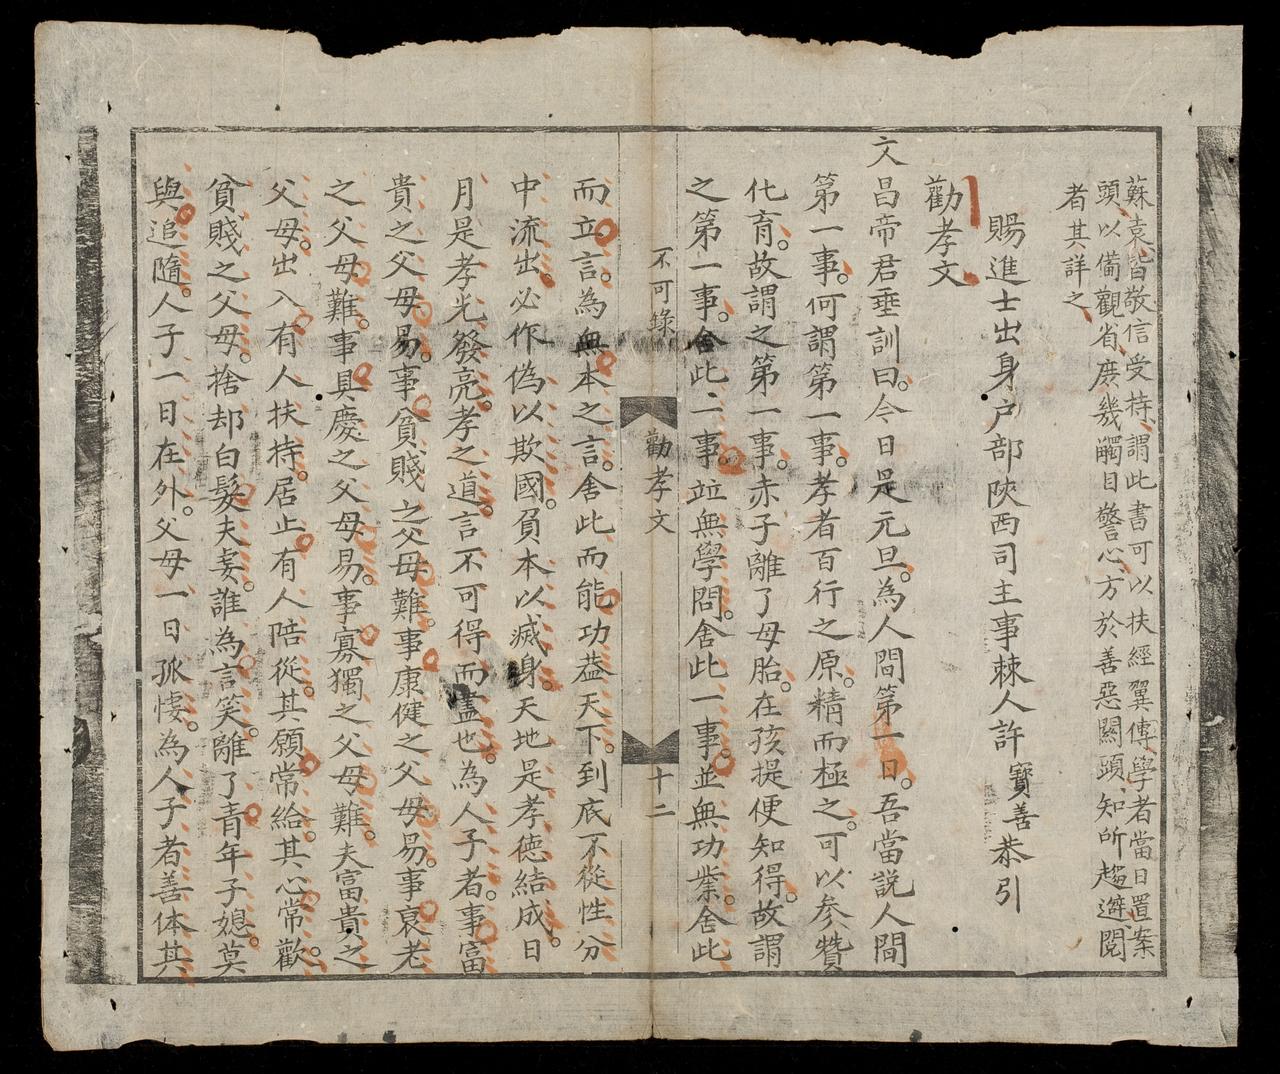 蘇袁皆敬信受持謂此書可以扶經翼傳學者當日置案
頭以備觀省庶幾觸目警心方於善惡關頭知所趨避閱
者其詳之
賜進士出身户部陝西司主事棘人許寶善恭引
勸孝文
文昌帝君垂訓曰。今日是元旦。為人間第一日。吾當説人間
第一事。何謂第一事。孝者百行之原。精而極之。可以參贊
化育。故謂之第一事。赤子離了母胎。在孩提便知得。故謂
之第一事。舍此二事。竝無學問。舍此一事。並無功業。舍此
不可錄
勸孝文
十二
而立。言。為無本之言。舍此而能功葢天下。到底不從性分
中流出。必作偽以欺國。負本以滅身。天地是孝德結成。日
月是孝光發亮。孝之道。言不可得而盡也。為人子者。事富
貴之父母易。事貧賤之父母難。事康健之父母易。事衰老
之父母難。事具慶之父母易。事寡獨之父母難。夫富貴之
父母。出入有人扶持。居止有人陪從。其願常給。其心常歡。
貧賤之父母。捨却白髮夫妻。誰為言笑。離了青年子媳。莫
與追隨。人子一日在外。父母一日孤悽。為人子者善体其